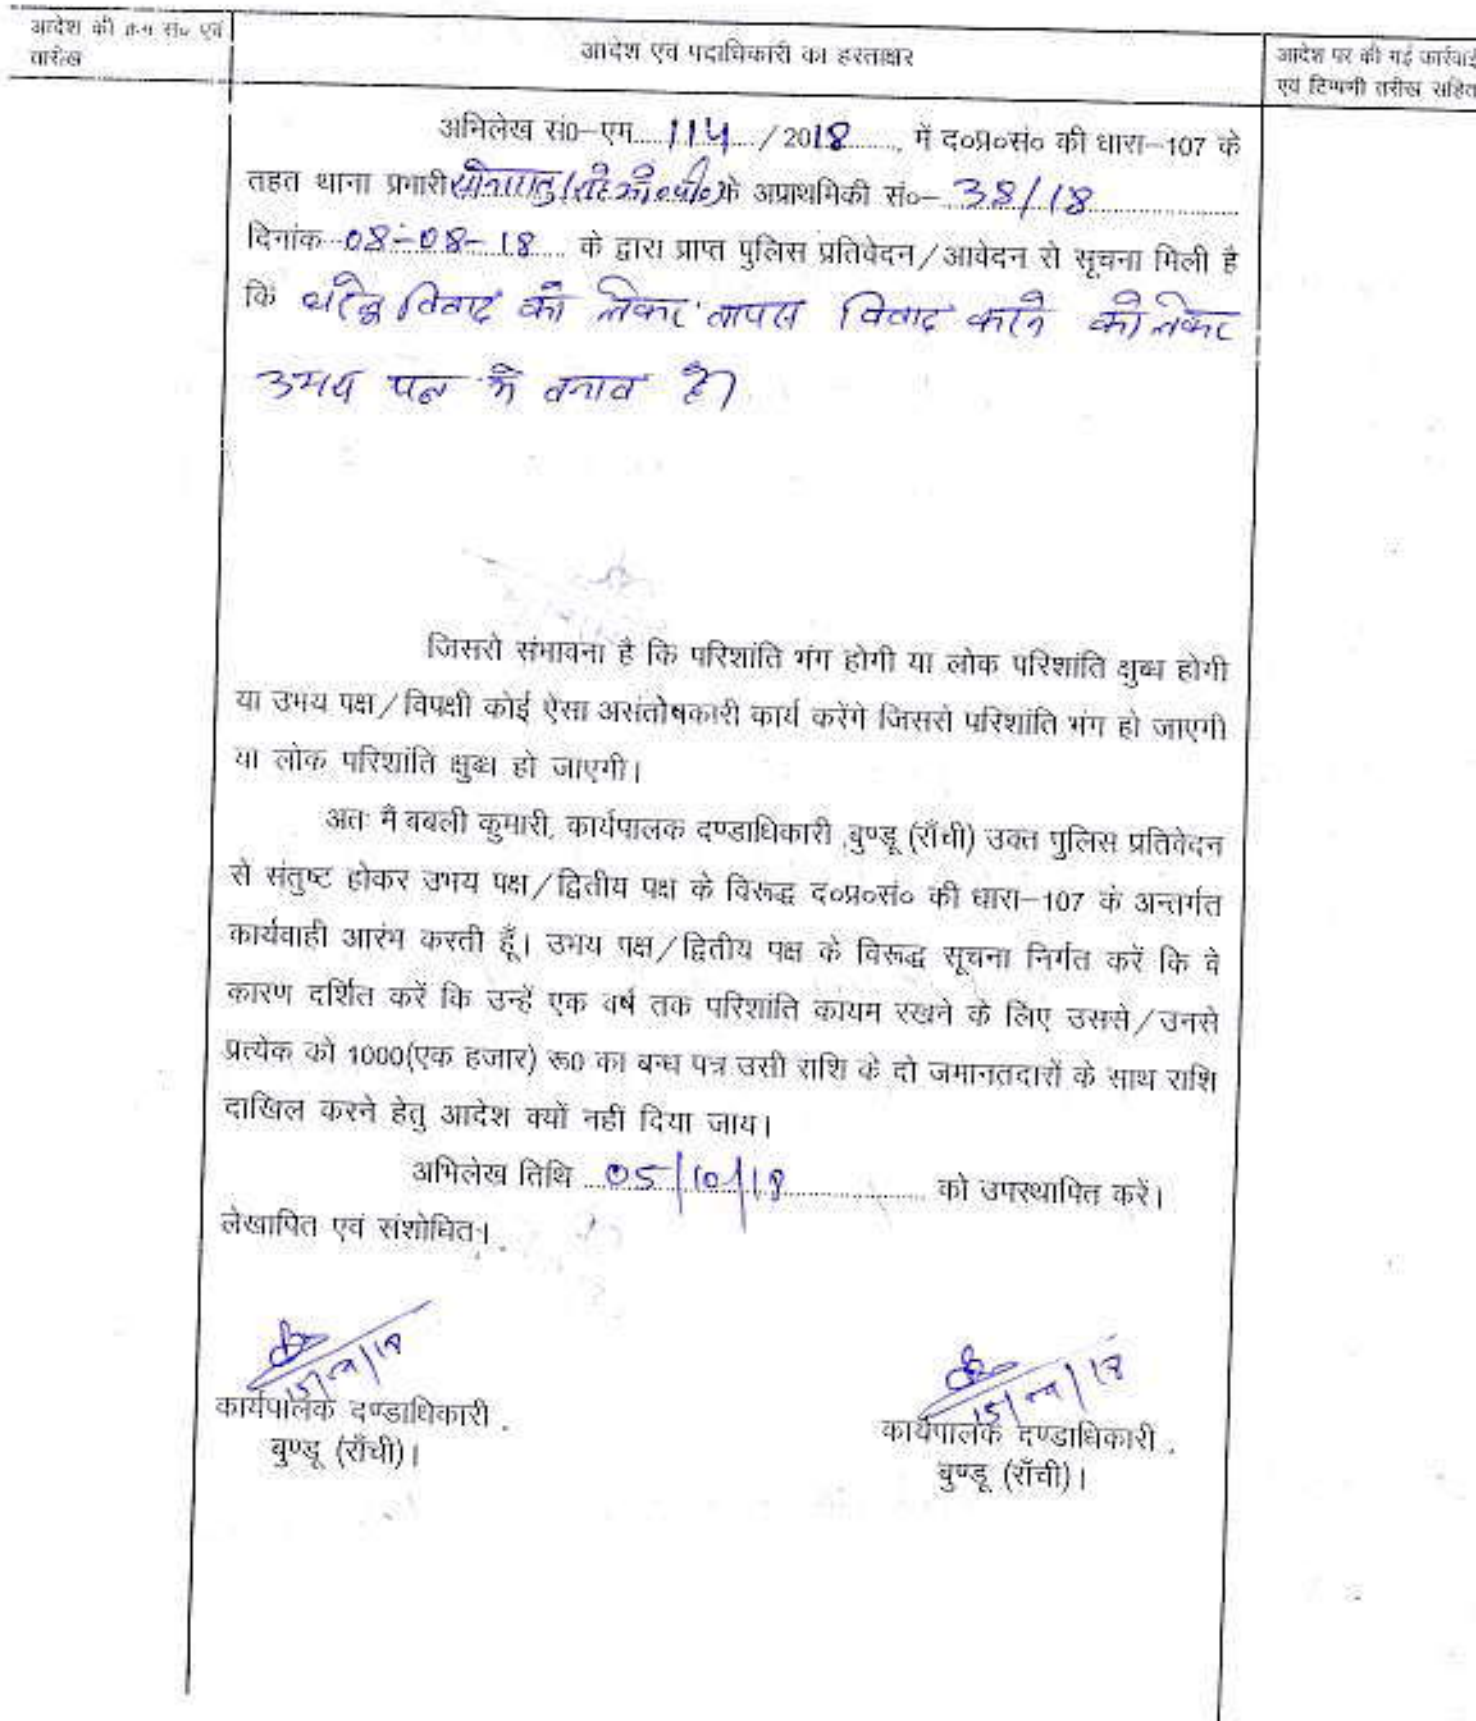 आदेश की क्रम सं० एवं
तारीख
आदेश एवं पदाधिकारी का हस्ताक्षर
आदेश पर की गई कार्रवाई
एवं टिप्पणी तारीख सहित
अभिलेख सं0-एम 114 / 2018 , में द०प्र०सं० की धारा-107 के
तहत थाना प्रभारी के अप्राथमिकी सं०- 38/18
दिनांक 08-08-18 के द्वारा प्राप्त पुलिस प्रतिवेदन/आवेदन से सूचना मिली है
कि घरेलु विवाद को लेकर आपस विवाद करने को लेकर
उभय पक्ष में तनाव है।
जिससे संभावना है कि परिशांति भंग होगी या लोक परिशांति क्षुब्ध होगी
या उभय पक्ष/विपक्षी कोई ऐसा असंतोषकारी कार्य करेंगे जिससे परिशांति भंग हो जाएगी
या लोक परिशांति क्षुब्ध हो जाएगी।
अतः मैं बबली कुमारी, कार्यपालक दण्डाधिकारी ,बुण्डू (राँची) उक्त पुलिस प्रतिवेदन
से संतुष्ट होकर उभय पक्ष/द्वितीय पक्ष के विरूद्ध द०प्र०सं० की धारा-107 के अन्तर्गत
कार्यवाही आरंभ करती हूँ। उभय पक्ष/द्वितीय पक्ष के विरूद्ध सूचना निर्गत करें कि वे
कारण दर्शित करें कि उन्हें एक वर्ष तक परिशांति कायम रखने के लिए उससे/उनसे
प्रत्येक को 1000(एक हजार) रू0 का बन्ध पत्र उसी राशि के दो जमानतदारों के साथ राशि
दाखिल करने हेतु आदेश क्यों नहीं दिया जाय।
अभिलेख तिथि 05/10/18 को उपस्थापित करें।
लेखापित एवं संशोधित।
कार्यपालक दण्डाधिकारी .
बुण्डू (राँची)।
कार्यपालक दण्डाधिकारी .
बुण्डू (राँची)।